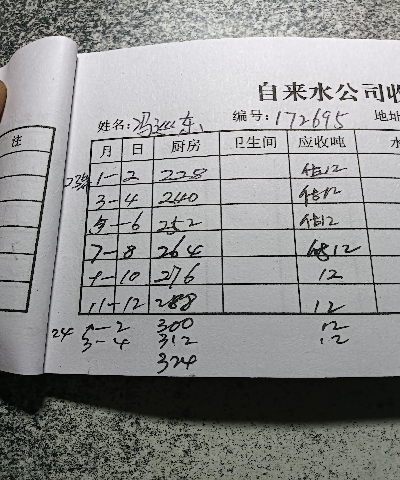 自来水公司收
姓名: 冯 东 编号: 172695 地址
注 月 日 厨房 卫生间 应收吨 水
23年 1-2 228 估12
3-4 240 估12
5-6 252 估12
7-8 264 估12
9-10 276 12
11-12 288 12
24 1-2 300 12
3-4 312 12
324